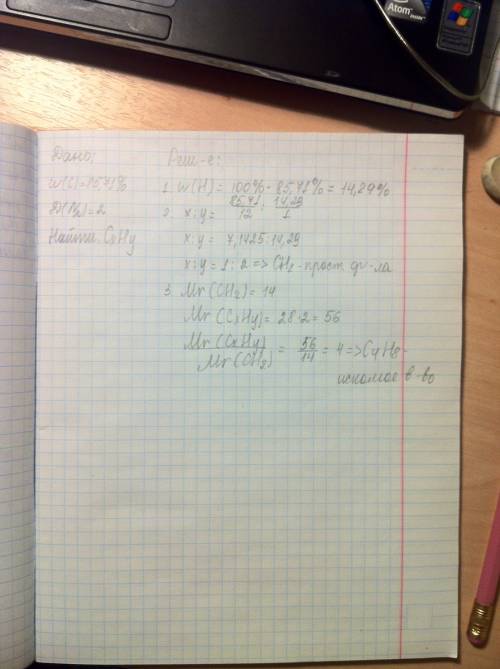 Atom
Дано:
w(C)=85,71%
D(N₂)=2
Найти: CxHy
Реш-е:
1. w(H) = 100% - 85,71% = 14,29%
2. x:y = 85,71/12 : 14,29/1
x:y = 7,1425:14,29
x:y = 1:2 => CH₂ - прост. ф-ла
3. Mr(CH₂) = 14
Mr(CxHy) = 28·2 = 56
Mr(CxHy)/Mr(CH₂) = 56/14 = 4 => C₄H₈ -
искомое в-во